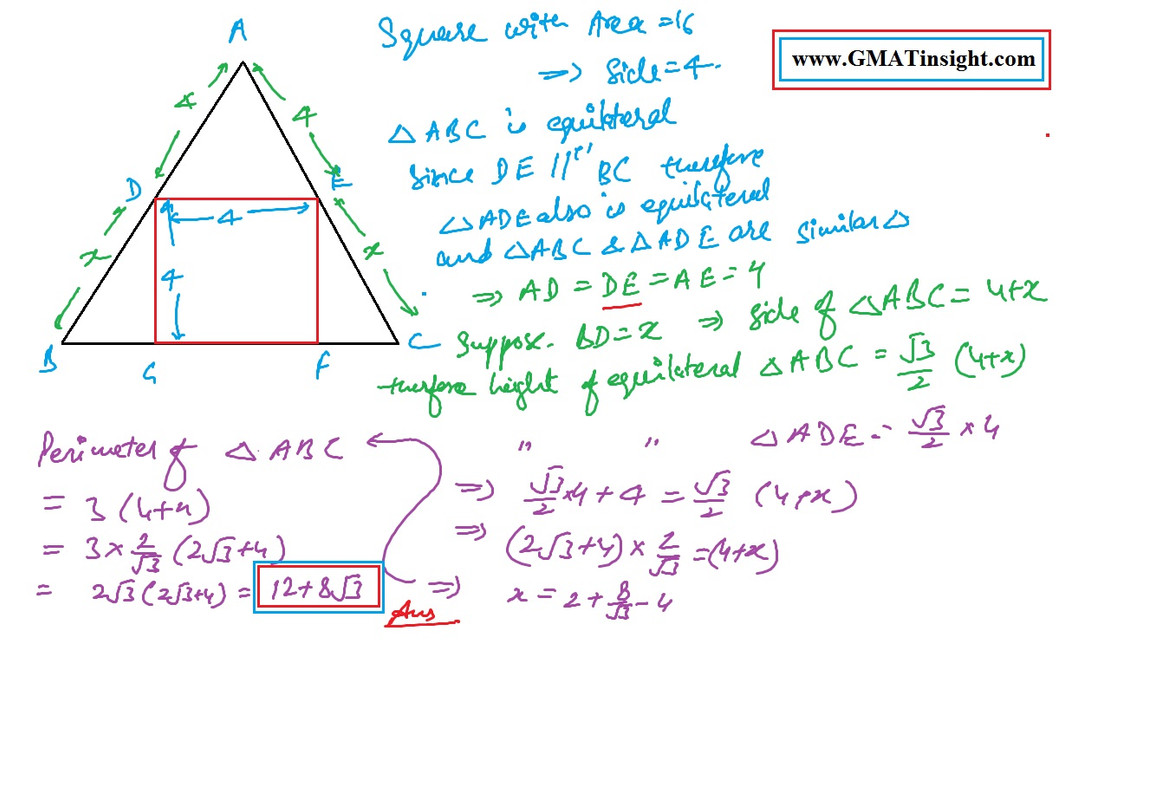 A
Square with Area = 16
⇒ Side = 4.
www.GMATinsight.com
4
4
△ ABC is equilateral
Since DE ||ᵉˡ BC therefore
D
E
4
△ ADE also is equilateral
and △ ABC & △ ADE are similar △
x
x
4
⇒ AD = DE = AE = 4
Suppose. BD = x ⇒ Side of △ ABC = 4+x
B
G
F
C
therefore height of equilateral △ ABC = √3/2 (4+x)
" " △ ADE = √3/2 × 4
Perimeter of △ ABC
= 3 (4+x)
= 3 × 2/√3 (2√3+4)
= 2√3 (2√3+4) = 12+8√3
Ans
⇒ √3/2 × 4 + 4 = √3/2 (4+x)
⇒ (2√3+4) × 2/√3 = (4+x)
⇒ x = 2 + 8/√3 - 4